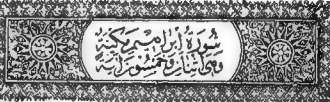 سورة إبراهيم مكية
وهى اثنتان وخمسون آية